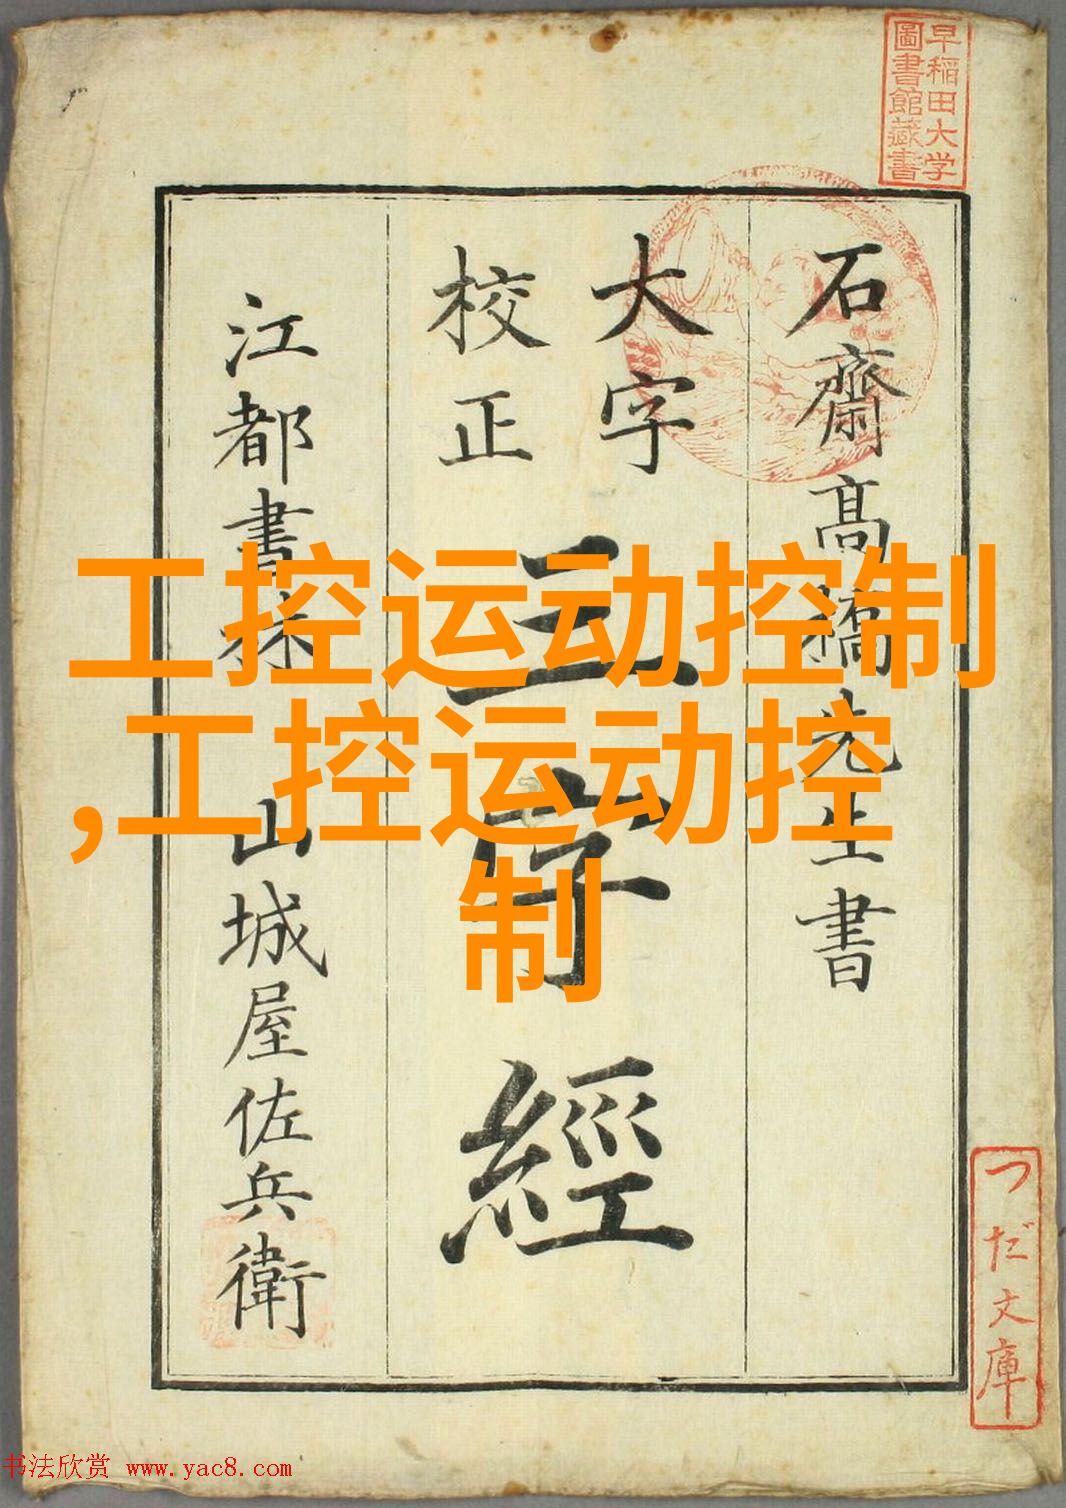 早稲田大学
圖書館藏書
石齋高橋先生書
大字
校正
三字經
江都書林 山城屋佐兵衛
つだ文庫
工控运动控制
,工控运动控
制
书法欣赏 www.yac8.com